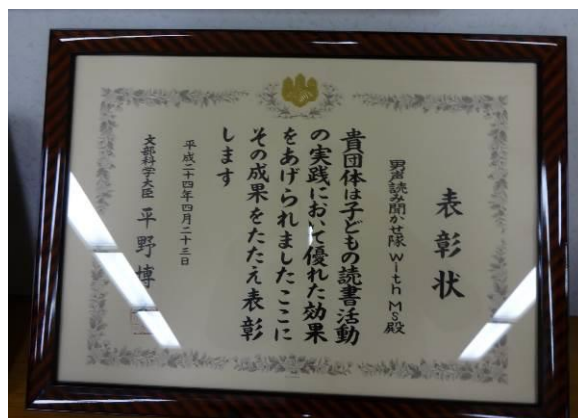 表彰状
男声読み聞かせ隊 With Ms殿
貴団体は子どもの読書活動
の実践において優れた効果
をあげられましたここに
その成果をたたえ表彰
します
平成二十四年四月二十三日
文部科学大臣 平野博